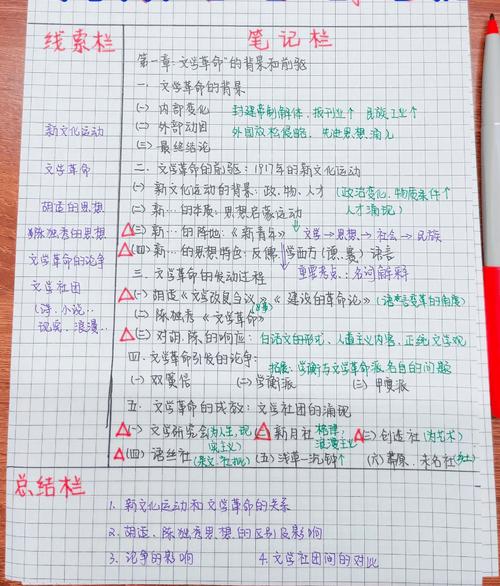 线索栏
笔记栏
第一章 "文学革命"的背景和前驱
一. 文学革命的背景
(一) 内部变化 封建帝制解体, 报刊业↑ 民族工业↑
(二) 外部动因 外国放枪侵略, 先进思想涌入
(三) 最终结论
二. 文学革命的前驱: 1917年的新文化运动
(一) 新文化运动的背景: 政、物、人才 (政治变化, 物质条件↑
人才涌现)
(二) 新…的本质: 思想启蒙运动
△(三) 新…的阵地:《新青年》 文学→思想→社会→民族
△(四) 新…的思想特色: 反儒, 学西方(德.赛) 语言
重要考点: 名词解释
三. 文学革命的发动过程
△(一) 胡适《文学改良刍议》《建设的革命论》(语言变革的角度)
(二) 陈独秀《文学革命论》
△(三) 对胡.陈的响应: 白话文的形式, 人道主义内容, 正统文学观
四. 文学革命引发的论争: 拓展: 学衡与文学革命派各自的问题
(一) 双簧信 (二) 学衡派 (三) 甲寅派
五. 文学革命的成数: 文学社团的涌现
△(一) 文学研究会(为人生, 现实主义) △(二) 新月社 格律, 浪漫主义 △(三) 创造社 (为艺术)
△(四) 语丝社 (杂文.社批) (五) 浅草—沉钟 (六) 莽原、未名社
新文化运动
文学革命
胡适的思想
陈独秀的思想
文学革命的论争
文学社团
(诗.小说..
现实、浪漫..
总结栏
1. 新文化运动和文学革命的关系
2. 胡适、陈独秀思想的区别及影响
3. 论争的影响 4. 文学社团间的对比